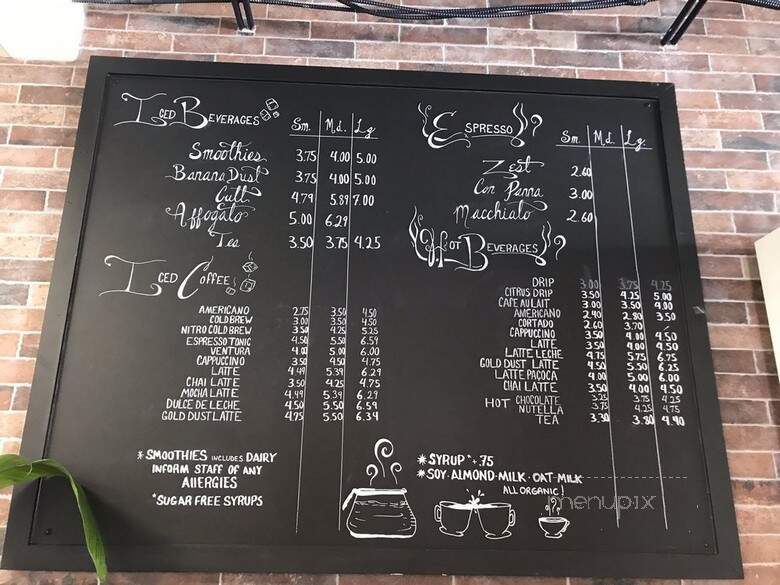 Iced Beverages
Sm. Md. Lg
Smoothies 3.75 4.00 5.00
Banana Dust 3.75 4.00 5.00
Cult 4.79 5.89 7.00
Affogato 5.00 6.29
Tea 3.50 3.75 4.25
Iced Coffee
AMERICANO 2.75 3.50 4.50
COLD BREW 3.00 3.50 4.50
NITRO COLD BREW 3.50 4.25 5.25
ESPRESSO TONIC 4.50 5.50 6.59
VENTURA 4.00 5.00 6.00
CAPPUCCINO 3.50 4.50 4.75
LATTE 4.49 5.39 6.29
CHAI LATTE 3.50 4.25 4.75
MOCHA LATTE 4.49 5.39 6.29
DULCE DE LECHE 4.50 5.50 6.59
GOLD DUST LATTE 4.75 5.50 6.34
* SMOOTHIES INCLUDES DAIRY
INFORM STAFF OF ANY
AllERGIES
*SUGAR FREE SYRUPS
Espresso
Sm. Md. Lg
Zest 2.60
Con Panna 3.00
Macchiato 2.60
Hot Beverages
DRIP 3.00 3.75 4.25
CITRUS DRIP 3.50 4.25 5.00
CAFE AU LAIT 3.00 3.50 4.00
AMERICANO 2.40 2.80 3.50
CORTADO 2.60 3.70
CAPPUCCINO 3.50 4.00 4.50
LATTE 3.50 4.00 4.50
LATTE LECHE 4.75 5.75 6.75
GOLD DUST LATTE 4.50 5.50 6.25
LATTE PAÇOCA 4.00 5.00 6.00
CHAI LATTE 3.50 4.00 4.50
HOT CHOCOLATE 3.25 3.75 4.25
NUTELLA 3.75 4.25 4.75
TEA 3.30 3.80 4.90
* SYRUP *+.75
* SOY · ALMOND · MILK · OAT · MILK
ALL ORGANIC!
menupix